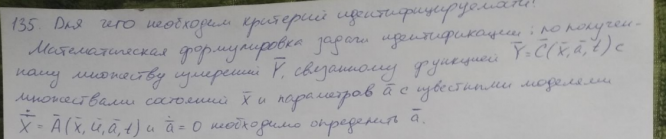 135. Для чего необходим критерий идентифицируемости?
Математическая формулировка задачи идентификации: по получен-
ному множеству измерений Ȳ, связанному функцией Ȳ=C̄(x̄,ā,t) с
множествами состояний x̄ и параметров ā с известными моделями
ẋ̄ = Ā(x̄,ū,ā,t) и ǡ=0 необходимо определить ā.